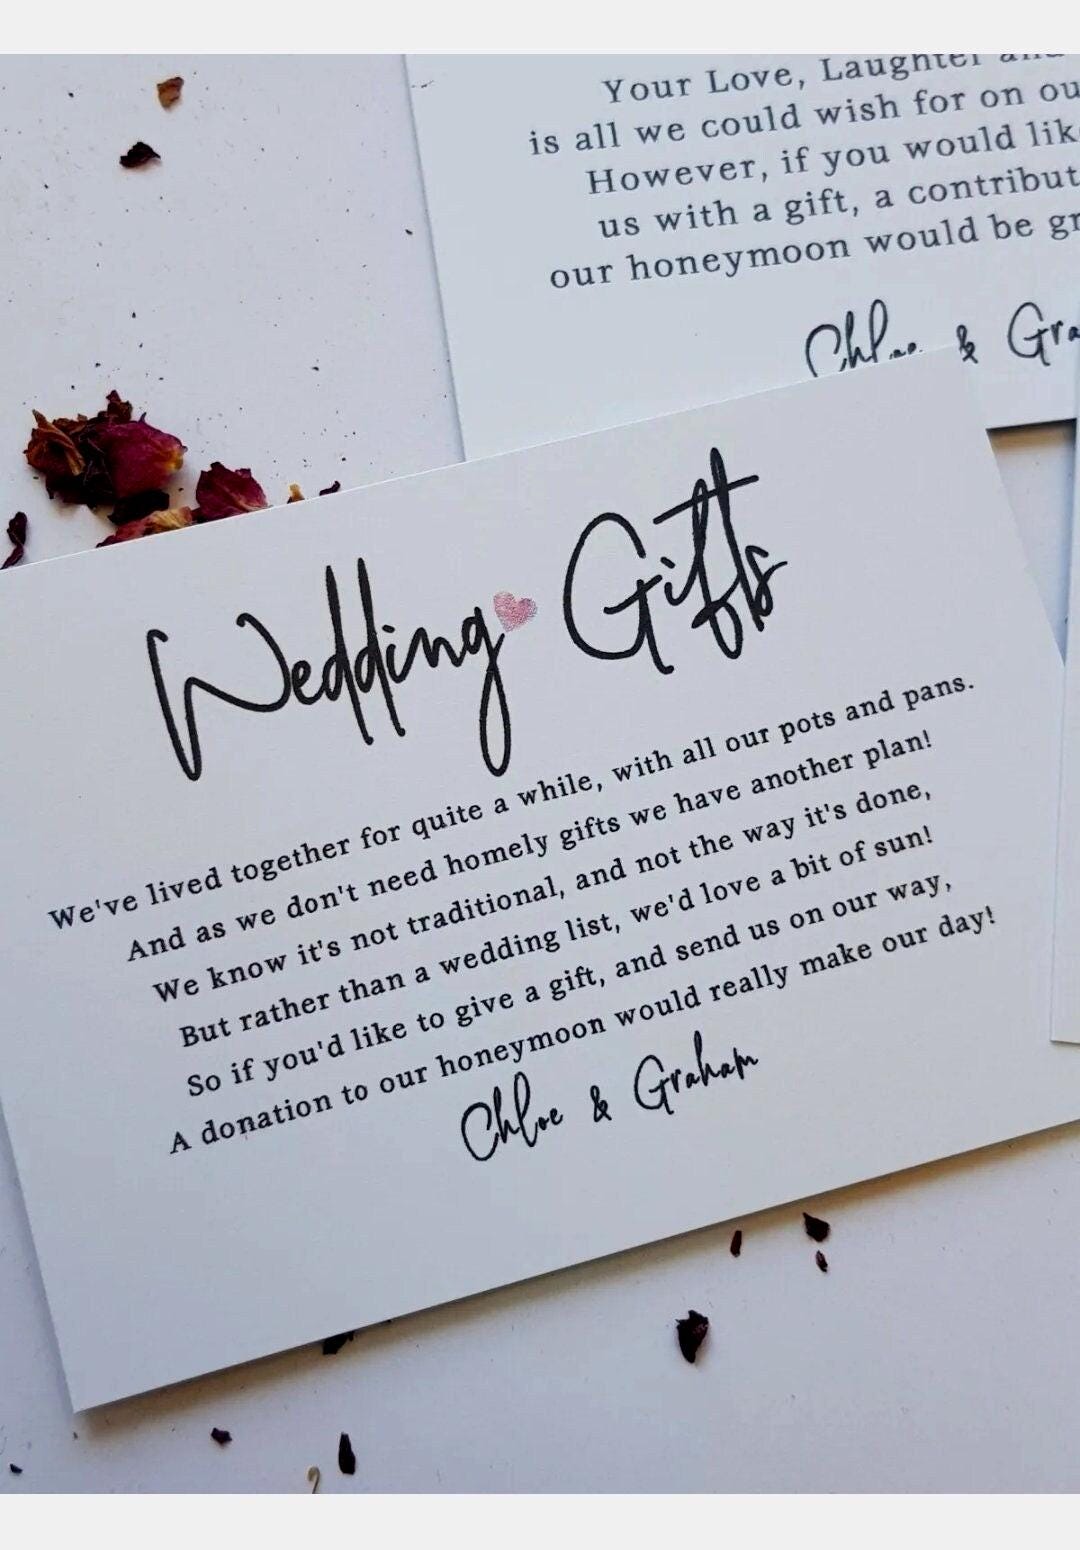 Your Love, Laughter
is all we could wish for on
However, if you would
us with a gift, a
our honeymoon would be
Chloe &
Wedding Gifts
We've lived together for quite a while, with all our pots and pans.
And as we don't need homely gifts we have another plan!
We know it's not traditional, and not the way it's done,
But rather than a wedding list, we'd love a bit of sun!
So if you'd like to give a gift, and send us on our way,
A donation to our honeymoon would really make our day!
Chloe & Graham